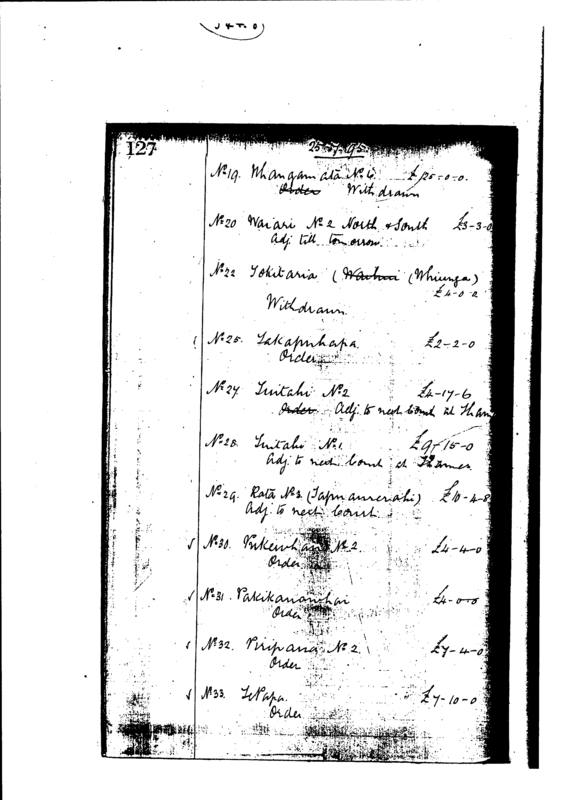 127
25.7.95.
No 19. Whangamata No 4. £25-0-0.
Order Withdrawn
No 20 Waiari No 2 North & South £3-3-0
Adj. till tomorrow.
No 22 Tokitaria ( (Whiunga)
£4-0-0
Withdrawn.
No 25. Takapuhapa. £2-2-0
Order.
No 27 Tuitahi No 2 £4-17-6
Order Adj. to next Court at Tham
No 28. Tuitahi No 1. £9-15-0
Adj. to next Court at Thames
No 29. Rata No 3. £10-4-8
Adj. to next Court.
No 30. Pukewhau No 2. £4-4-0
Order
No 31. £4-0-0
Order
No 32. No 2. £7-4-0
Order
No 33. Te Papa. £7-10-0
Order